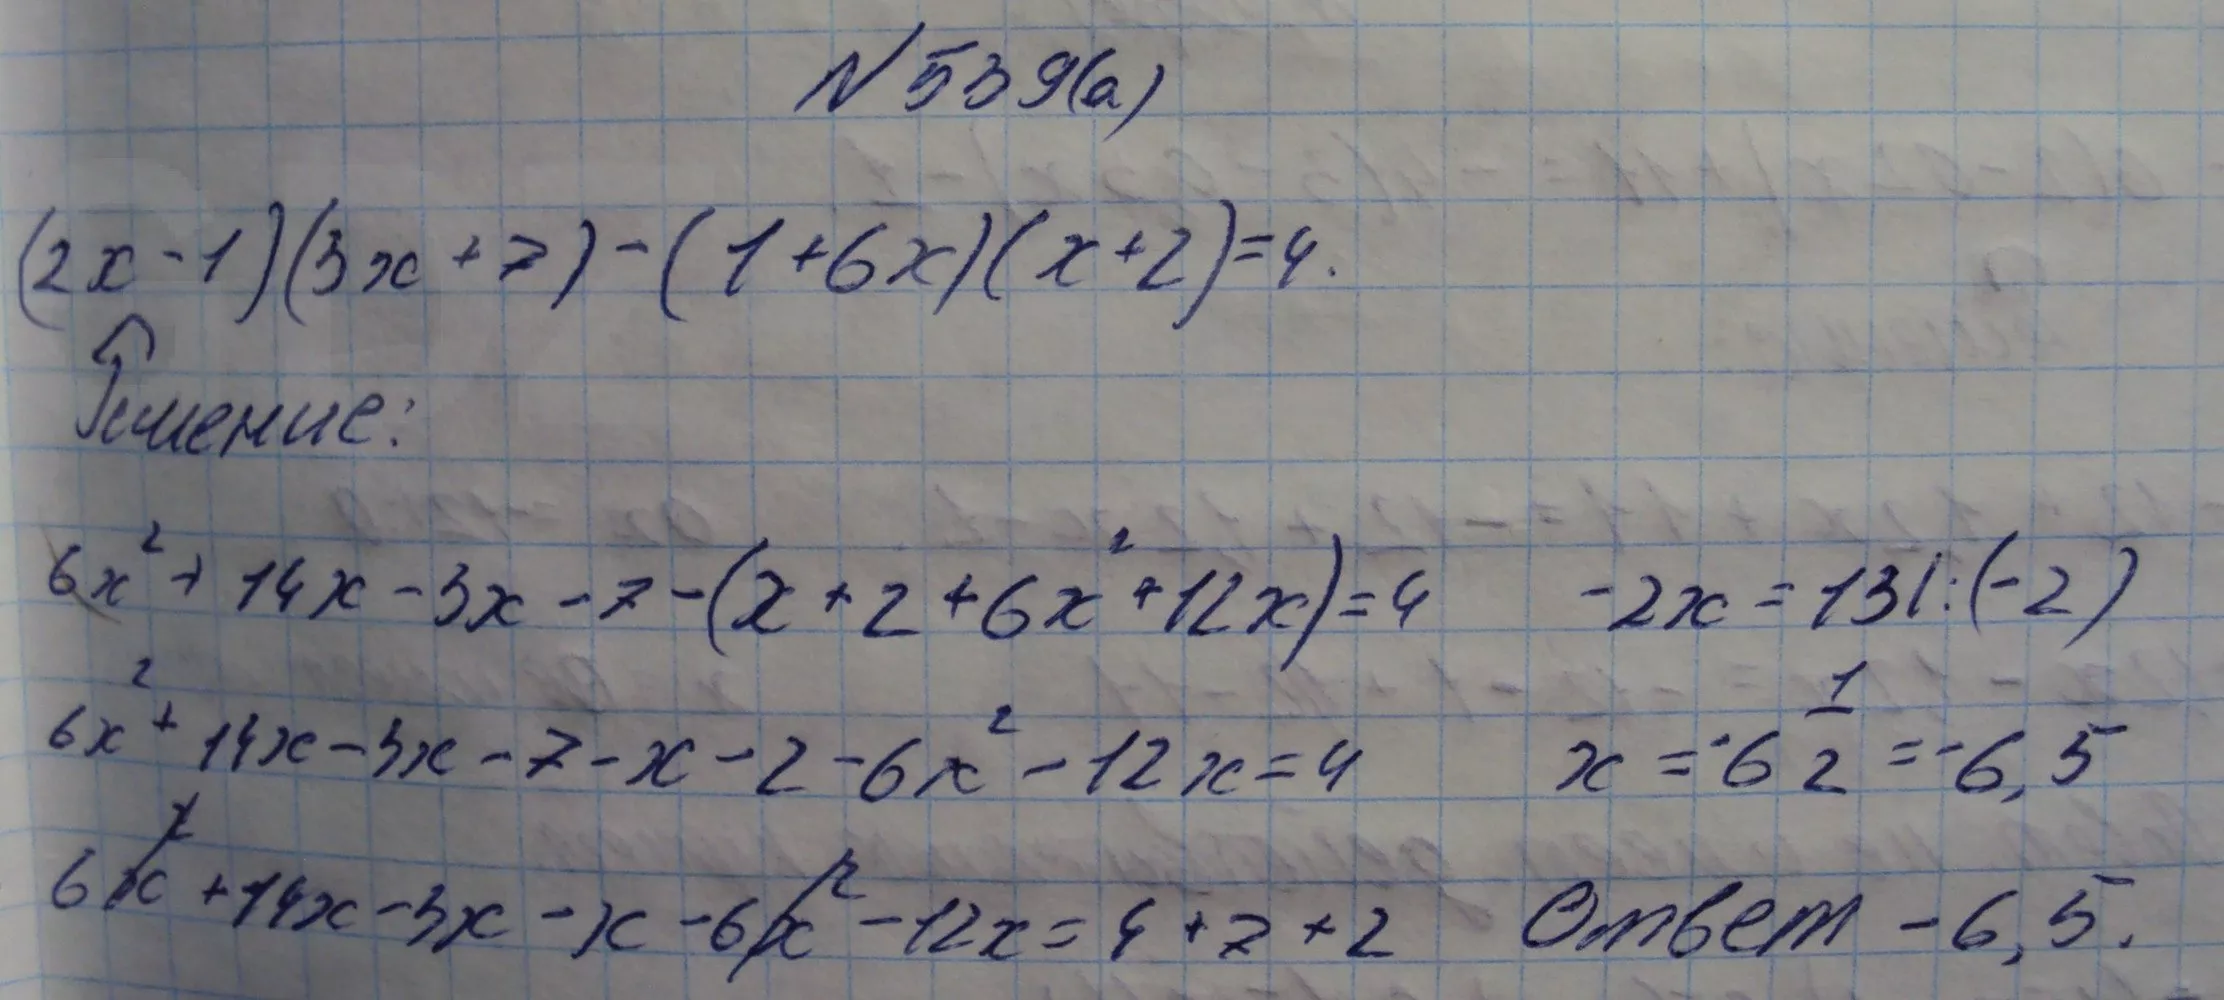 N 539(а)
(2x - 1)(3x + 7) - (1 + 6x)(x + 2) = 4.
Решение:
6x² + 14x - 3x - 7 - (x + 2 + 6x² + 12x) = 4
6x² + 14x - 3x - 7 - x - 2 - 6x² - 12x = 4
6x² + 14x - 3x - x - 6x² - 12x = 4 + 7 + 2
-2x = 13 |:(-2)
x = -6 1/2 = -6,5
Ответ -6,5.